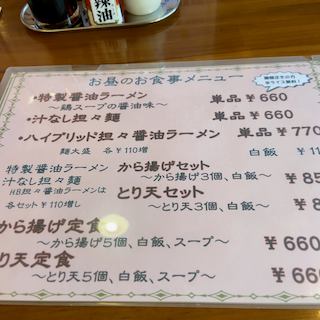 辣油
お昼のお食事メニュー
・特製醤油ラーメン 単品 ¥660
～鶏スープの醤油味～
・汁なし担々麺 単品 ¥660
・ハイブリッド担々醤油ラーメン 単品 ¥770
麺大盛 各¥110増 白飯
特製醤油ラーメン から揚げセット
汁なし担々麺 ～から揚げ3個、白飯～
HB担々醤油ラーメンは とり天セット
各セット¥110増し ～とり天3個、白飯～
から揚げ定食 ¥660
～から揚げ5個、白飯、スープ～
り天定食
～とり天5個、白飯、スープ～